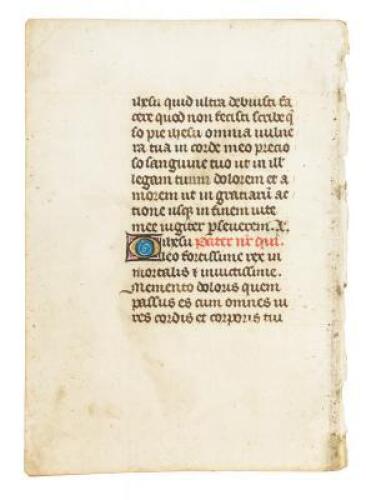 ihesu quid ultra debuisti fa
cere quod non fecisti scribe q̄
so pie ihesu omnia vulne
ra tua in corde meo precio
so sanguine tuo ut in ill'
legam tuum dolorem et a
morem ut in gratiarū ac
tione usq; in finem vite
mee iugiter pseuerem. A.
O ihesu Pater nr̄ qui.
leo fortissime rex in
mortalis & inuictissime.
Memento doloris quem
passus es cum omnes ui
res cordis et corporis tui